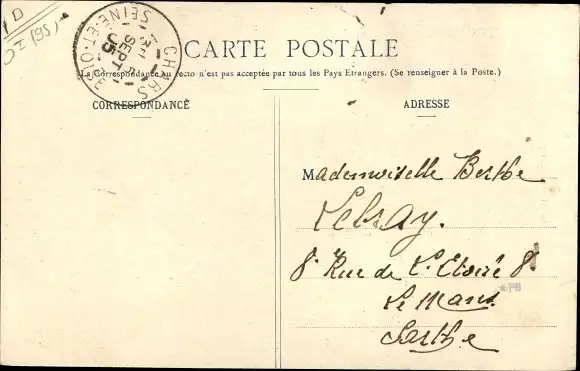 1 D
CHARS
SEPT
05
SEINE-ET-OISE
CARTE POSTALE
La Correspondance au recto n'est pas acceptée par tous les Pays Etrangers. (Se renseigner à la Poste.)
CORRESPONDANCE
ADRESSE
Mademoiselle Berthe
Lebray.
8 Rue de L'Etoile 8
Le Mans
*PB
Sarthe